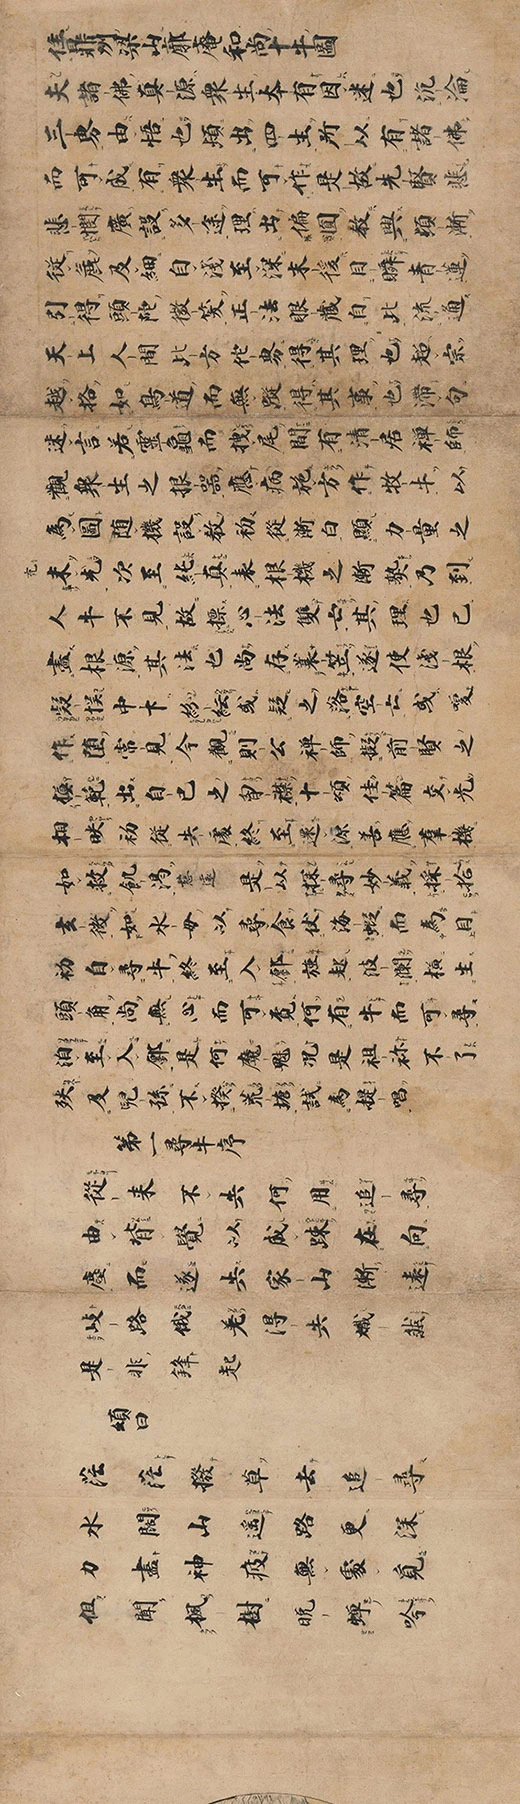 住鼎州梁山廓庵和尚十牛圖
夫諸佛真源衆生本有因迷也沉淪
三界由悟也頓出四生所以有諸佛
而可成有衆生而可作是故先賢悲
悲憫廣設多途理出偏圓教興頓漸
從麁及細自淺至深末後目瞬青蓮
引得頭陀微笑正法眼藏自此流通
天上人間此方他界得其理也超宗
越格如鳥道而無蹤得其事也滯句
迷言若靈龜而拽尾間有清居禪師
觀衆生之根器應病施方作牧牛以
為圖隨機設教初從漸白顯力量之
充
未光次至純真表根機之漸熟乃到
人牛不見故標心法雙亡其理也已
盡根源其法也尚存莎笠遂使淺根
疑悞中下紛紜或疑之落空亡或喚
作墮常見今觀則公禪師擬前賢之
模範出自己之胷襟十頌佳篇交光
相映初從失處終至還源善應羣機
如救飢渴慈遠是以探尋妙義採拾
玄微如水母以尋食依海蝦而為目
初自尋牛終至入鄽強起波瀾橫生
頭角尚無心而可覓何有牛而可尋
洎至入鄽是何魔魅況是祖祢不了
殃及兒孫不揆荒塘試為提唱
第一尋牛序
從來不失何用追尋
由背覺以成踈在向
塵而遂失家山漸遠
岐路俄差得失熾然
是非鋒起
頌曰
茫茫撥草去追尋
水闊山遙路更深
力盡神疲無處覓
但聞楓樹晚蟬吟